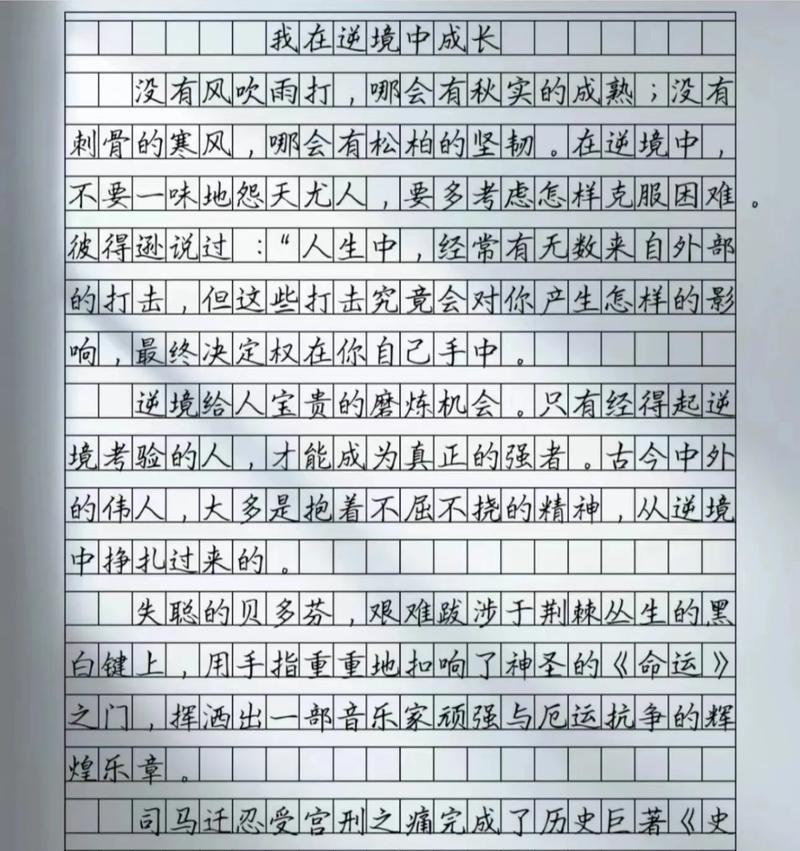 我在逆境中成长
没有风吹雨打，哪会有秋实的成熟；没有
刺骨的寒风，哪会有松柏的坚韧。在逆境中，
不要一味地怨天尤人，要多考虑怎样克服困难。
彼得逊说过：“人生中，经常有无数来自外部
的打击，但这些打击究竟会对你产生怎样的影
响，最终决定权在你自己手中。
逆境给人宝贵的磨炼机会。只有经得起逆
境考验的人，才能成为真正的强者。古今中外
的伟人，大多是抱着不屈不挠的精神，从逆境
中挣扎过来的。
失聪的贝多芬，艰难跋涉于荆棘丛生的黑
白键上，用手指重重地扣响了神圣的《命运》
之门，挥洒出一部音乐家顽强与厄运抗争的辉
煌乐章。
司马迁忍受宫刑之痛完成了历史巨著《史